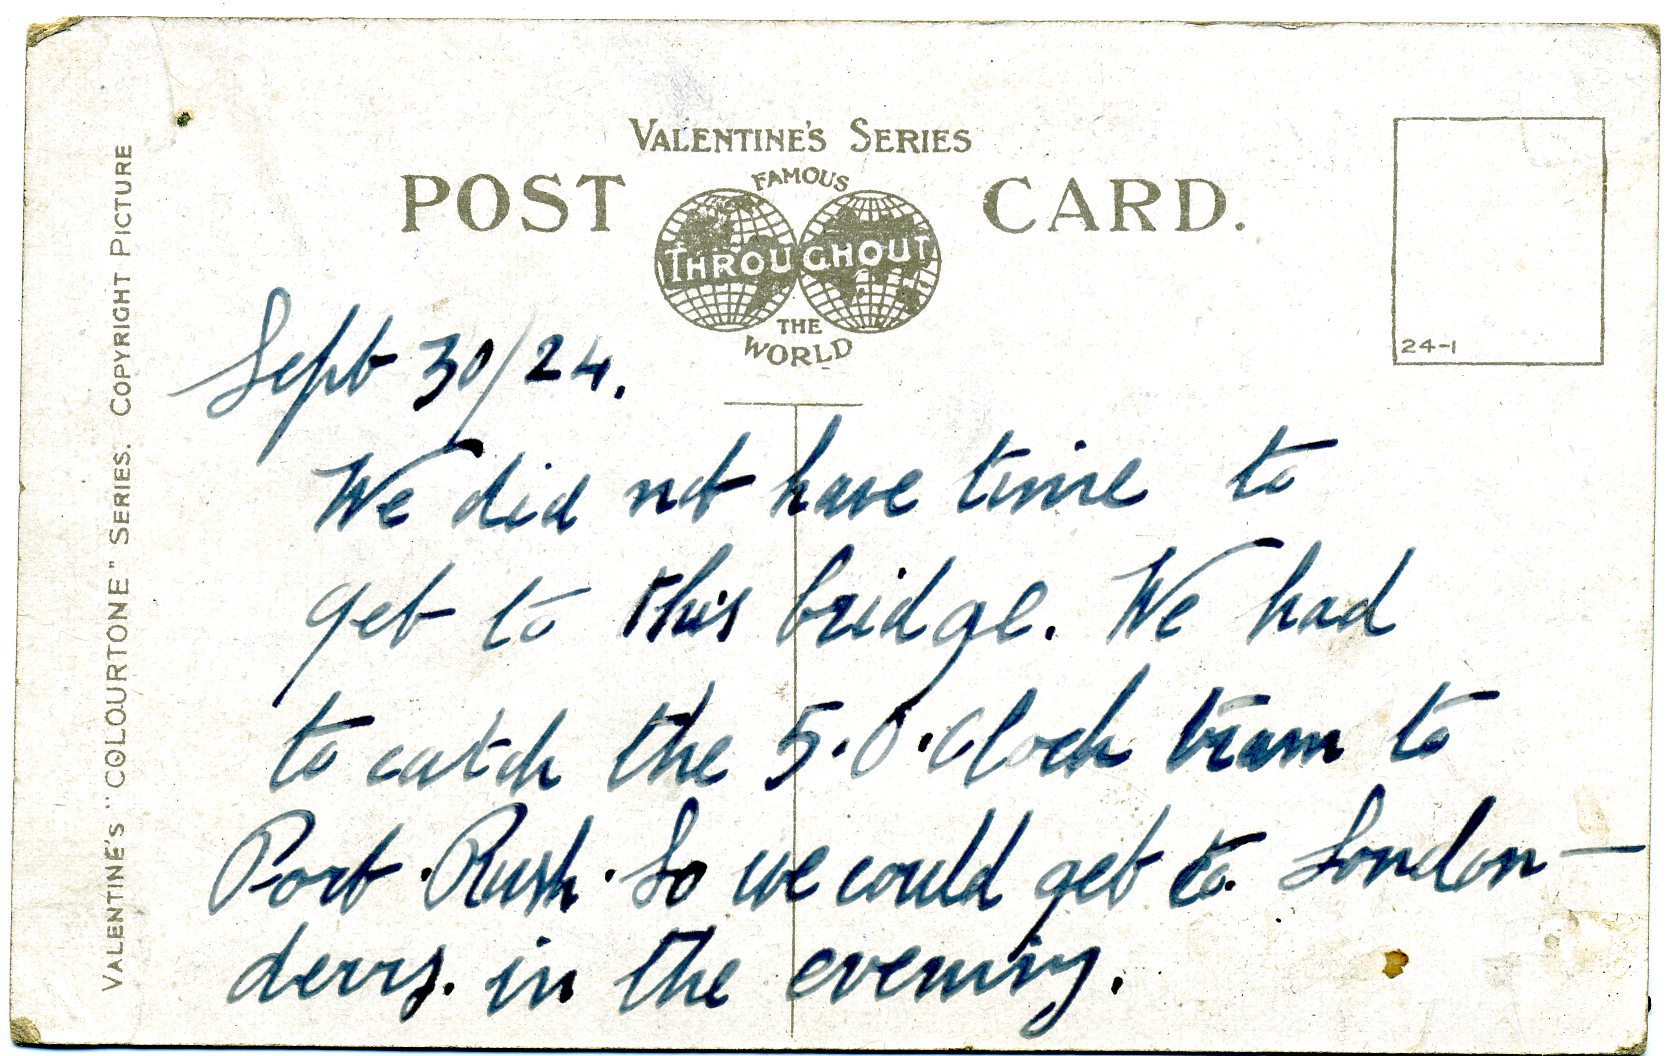 VALENTINE'S SERIES
POST CARD.
FAMOUS
THROUGHOUT
THE
WORLD
24-1
VALENTINE'S "COLOURTONE" SERIES. COPYRIGHT PICTURE
Sept 30/24.
We did not have time to
get to this bridge. We had
to catch the 5.O.Clock tram to
Port.Rush. So we could get to London-
derry. in the evening.